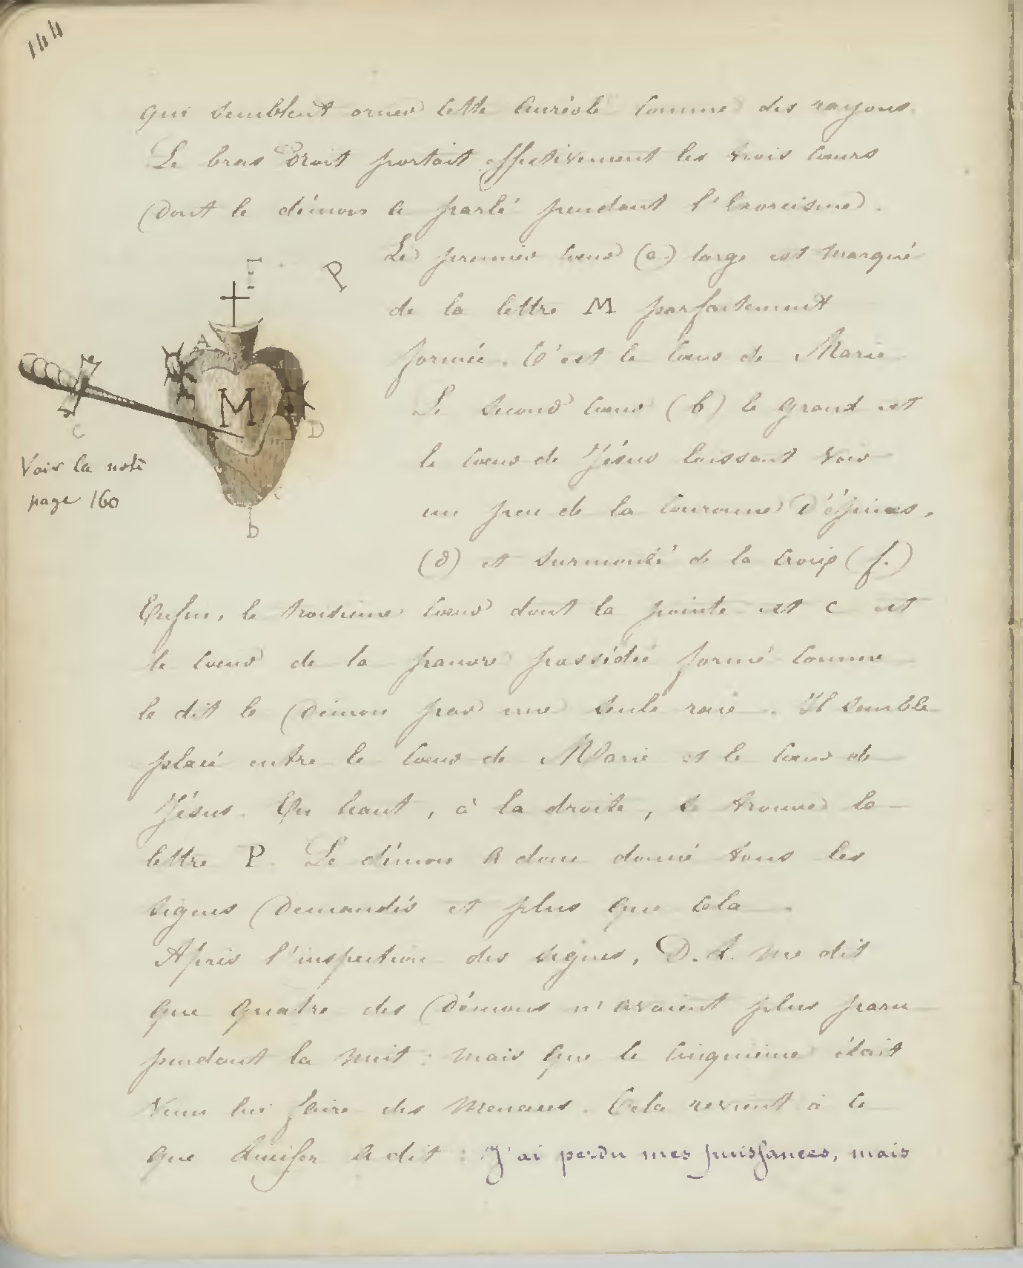 144
qui semblent orner cette auréole comme des rayons.
Le bras droit portait effectivement les trois cœurs
dont le démon a parlé pendant l'Exorcisme.
Le premier cœur (a) large est marqué
de la lettre M parfaitement
formée. C'est le cœur de Marie
Le second cœur (b) le grand est
le cœur de Jésus laissant voir
un peu de la couronne d'épines,
(d) et surmonté de la croix (f.)
F
P
A
M
C
D
b
Voir la note
page 160
Enfin, le troisième cœur dont la pointe est c est
le cœur de la pauvre possédée formé comme
le dit le Démon par une seule raie. Il semble
placé entre le cœur de Marie et le cœur de
Jésus. En haut, à la droite, se trouve la
lettre P. Le démon a donc donné tous les
signes demandés et plus que cela.
Après l'inspection des signes, D. me dit
que quatre des Démons n'avaient plus paru
pendant la nuit : mais que le cinquième était
venu lui faire des menaces. Cela revient à ce
que Lucifer a dit : J'ai perdu mes puissances, mais